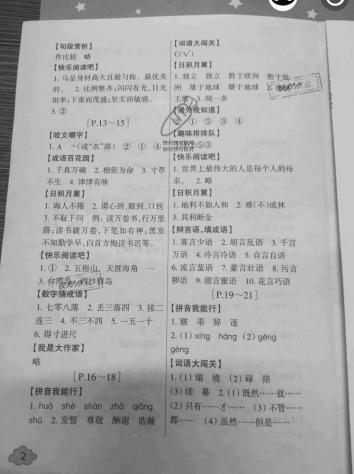 【句段赏析】
作比较 略
【快乐阅读吧】
1. 马是身材高大且最匀称、最优美
的。 2. 比例整齐；闪闪有光，目光
坦率；下垂而茂盛；坚实而敏感。
3. ②
[P.13~15]
【咬文嚼字】
1. A
【成语百花园】
1. 千真万确 2. 相依为命 3. 寸草
不生 4. 津津有味
【日积月累】
1. 诲人不倦 2. 谓心到，眼到，口到
3. 不耻下问 例：读万卷书，行万里
路；读书破万卷，下笔如有神；黑发
不知勤学早，白首方悔读书迟等。
【快乐阅读吧】
1. ① 2. 五指山 天涯海角 一
3. 台湾岛
【数字猜成语】
1. 七零八落 2. 丢三落四 3. 接二
连三 4. 不三不四 5. 一五一十
6. 得寸进尺
【我是大作家】
略
[P.16~18]
【拼音我能行】
1. huá shè shàn zhā qiāng
shǔ 2. 发誓 尊敬 酬谢 浩瀚
2
【词语大闯关】
C(√)
【日积月累】
1. 独立 独立 胜于欧洲 胜于欧
洲 雄于地球 雄于地球 2.
3. 闻一多
【课外我知道】
② ① ⑤ ③ ④
【趣味排排队】
【快乐阅读吧】
1. 世界上最伟大的人是每个人的母
亲。 2. 略
【日积月累】
1. 地利不如人和 2. 难(不)成林
3. 其利断金
【辩言语，填成语】
1. 寡言少语 2. 胡言乱语 3. 千言
万语 4. 冷言冷语 5. 自言自语
6. 流言蜚语 7. 豪言壮语 8. 污言
秽语 9. 甜言蜜语 10. 花言巧语
[P.19~21]
【拼音我能行】
2. (1) xíng háng (2) gēng
gèng
【词语大闯关】
1. (1) 塌 境 (2) 碌 陪
(3) 续 幕 2. (1) 既然……就……
(2) 只有……才…… (3) 不管……
都…… (4) 虽然……但是……